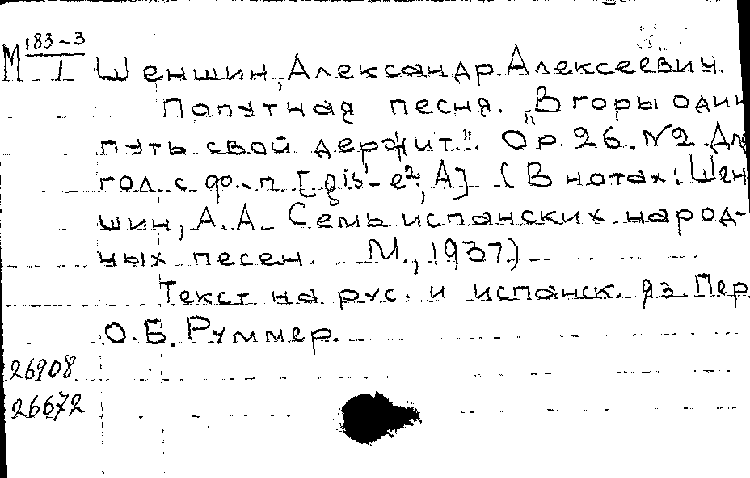 М 183-3
I Шеншин, Александр Алексеевич.
Попутная песня. "В горы один
путь свой держит". Ор. 26. №2 Дл
гол. с фо-п. [gis¹-e², A] (В нотах: Шен
шин, А.А. Семь испанских народ-
ных песен. М., 1937)
Текст на рус. и испанск. яз. Пер
О.Б. Руммер.
26908
26672